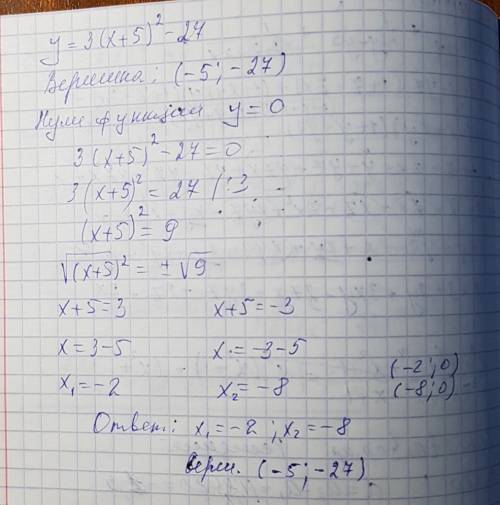 y = 3(x+5)² - 27
Вершина: (-5; -27)
Нули функции y = 0
3(x+5)² - 27 = 0
3(x+5)² = 27 /:3
(x+5)² = 9
√(x+5)² = ± √9
x+5 = 3 x+5 = -3
x = 3-5 x = -3-5
x₁ = -2 x₂ = -8
(-2; 0)
(-8; 0)
Ответ: x₁ = -2; x₂ = -8
Верш. (-5; -27)